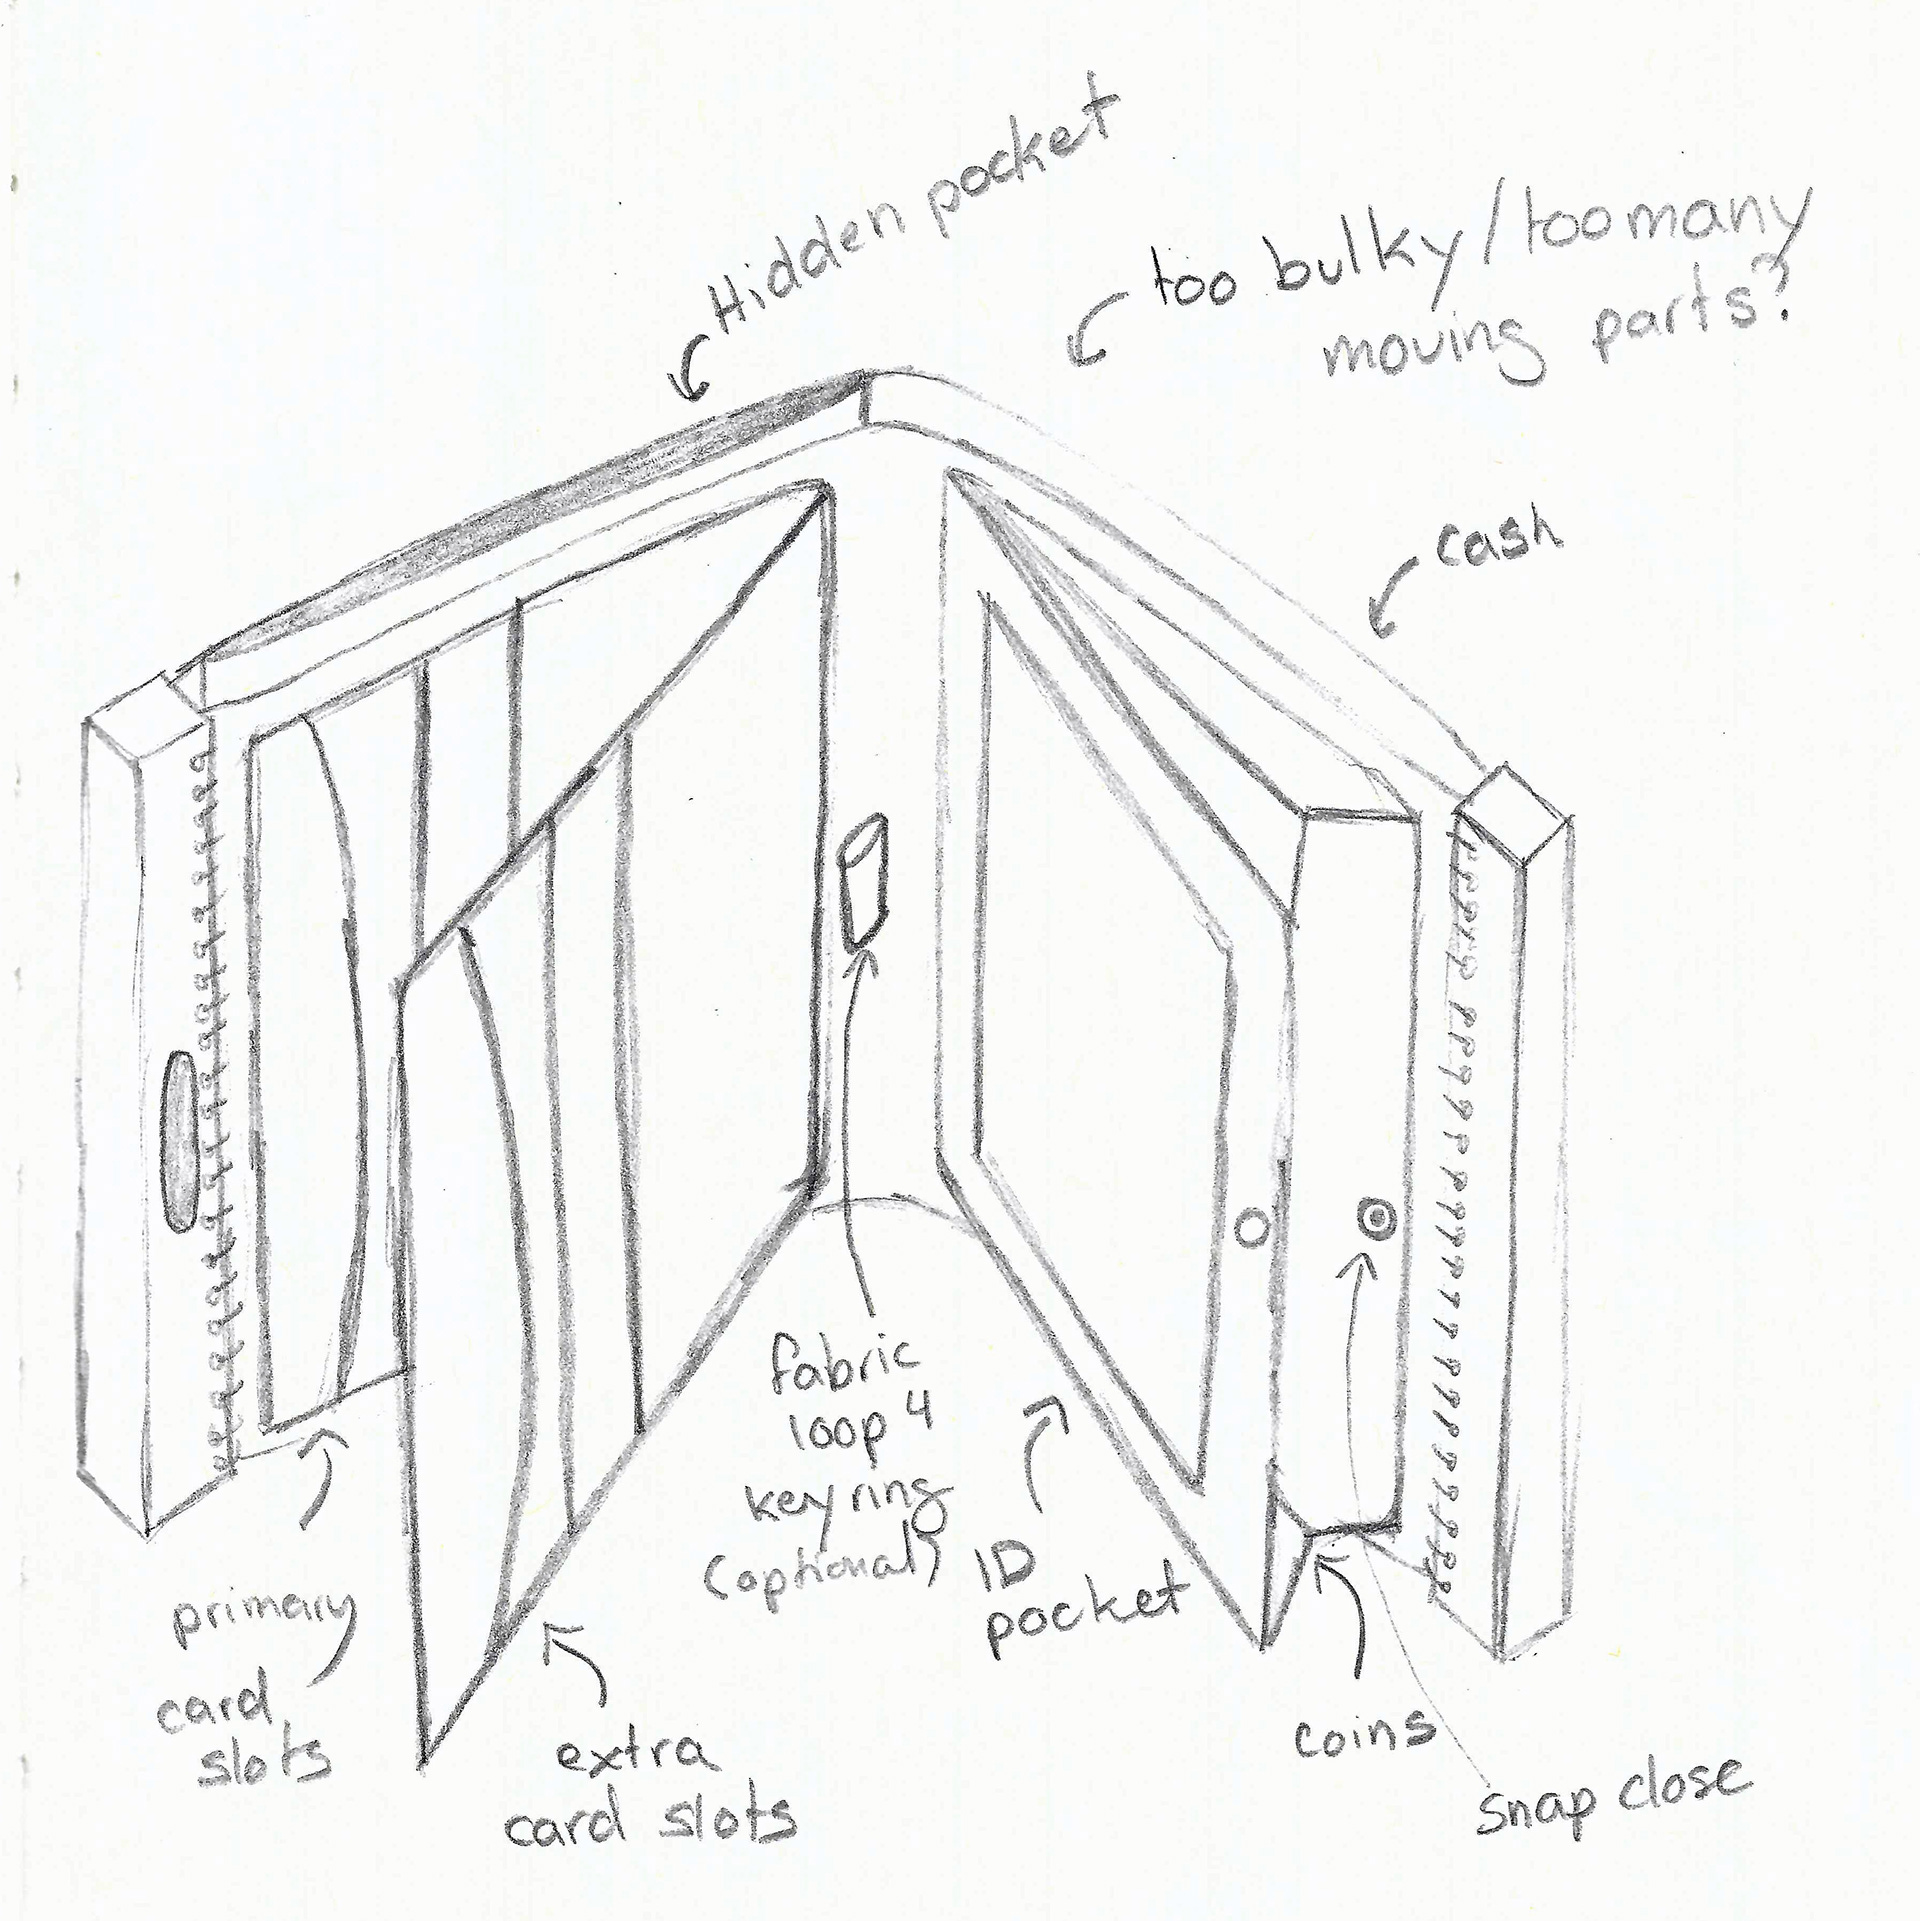 Hidden pocket
too bulky/too many
moving parts?
cash
fabric
loop 4
key ring
(optional)
ID
pocket
primary
card
slots
extra
card slots
coins
snap close